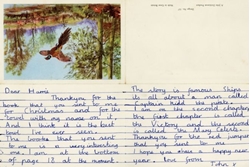 Dear Mami
Thankyou for the
book that you sent to me
for Christmas and for the
towel with my name on it
And I think it is the best
towel I've ever seen.
The book that you sent
to me is a very interesting
one. I am at the bottom
of page 18 at the moment.
The story is famous Ships
its all about a man called
Captain Kidd the pirate
I am on the second chapter
the first chapter is called
the Victory and this second
is called the Mary Celeste.
Thankyou for the red jumper
that you sent me
I hope you have a happy new
year. love from
John x